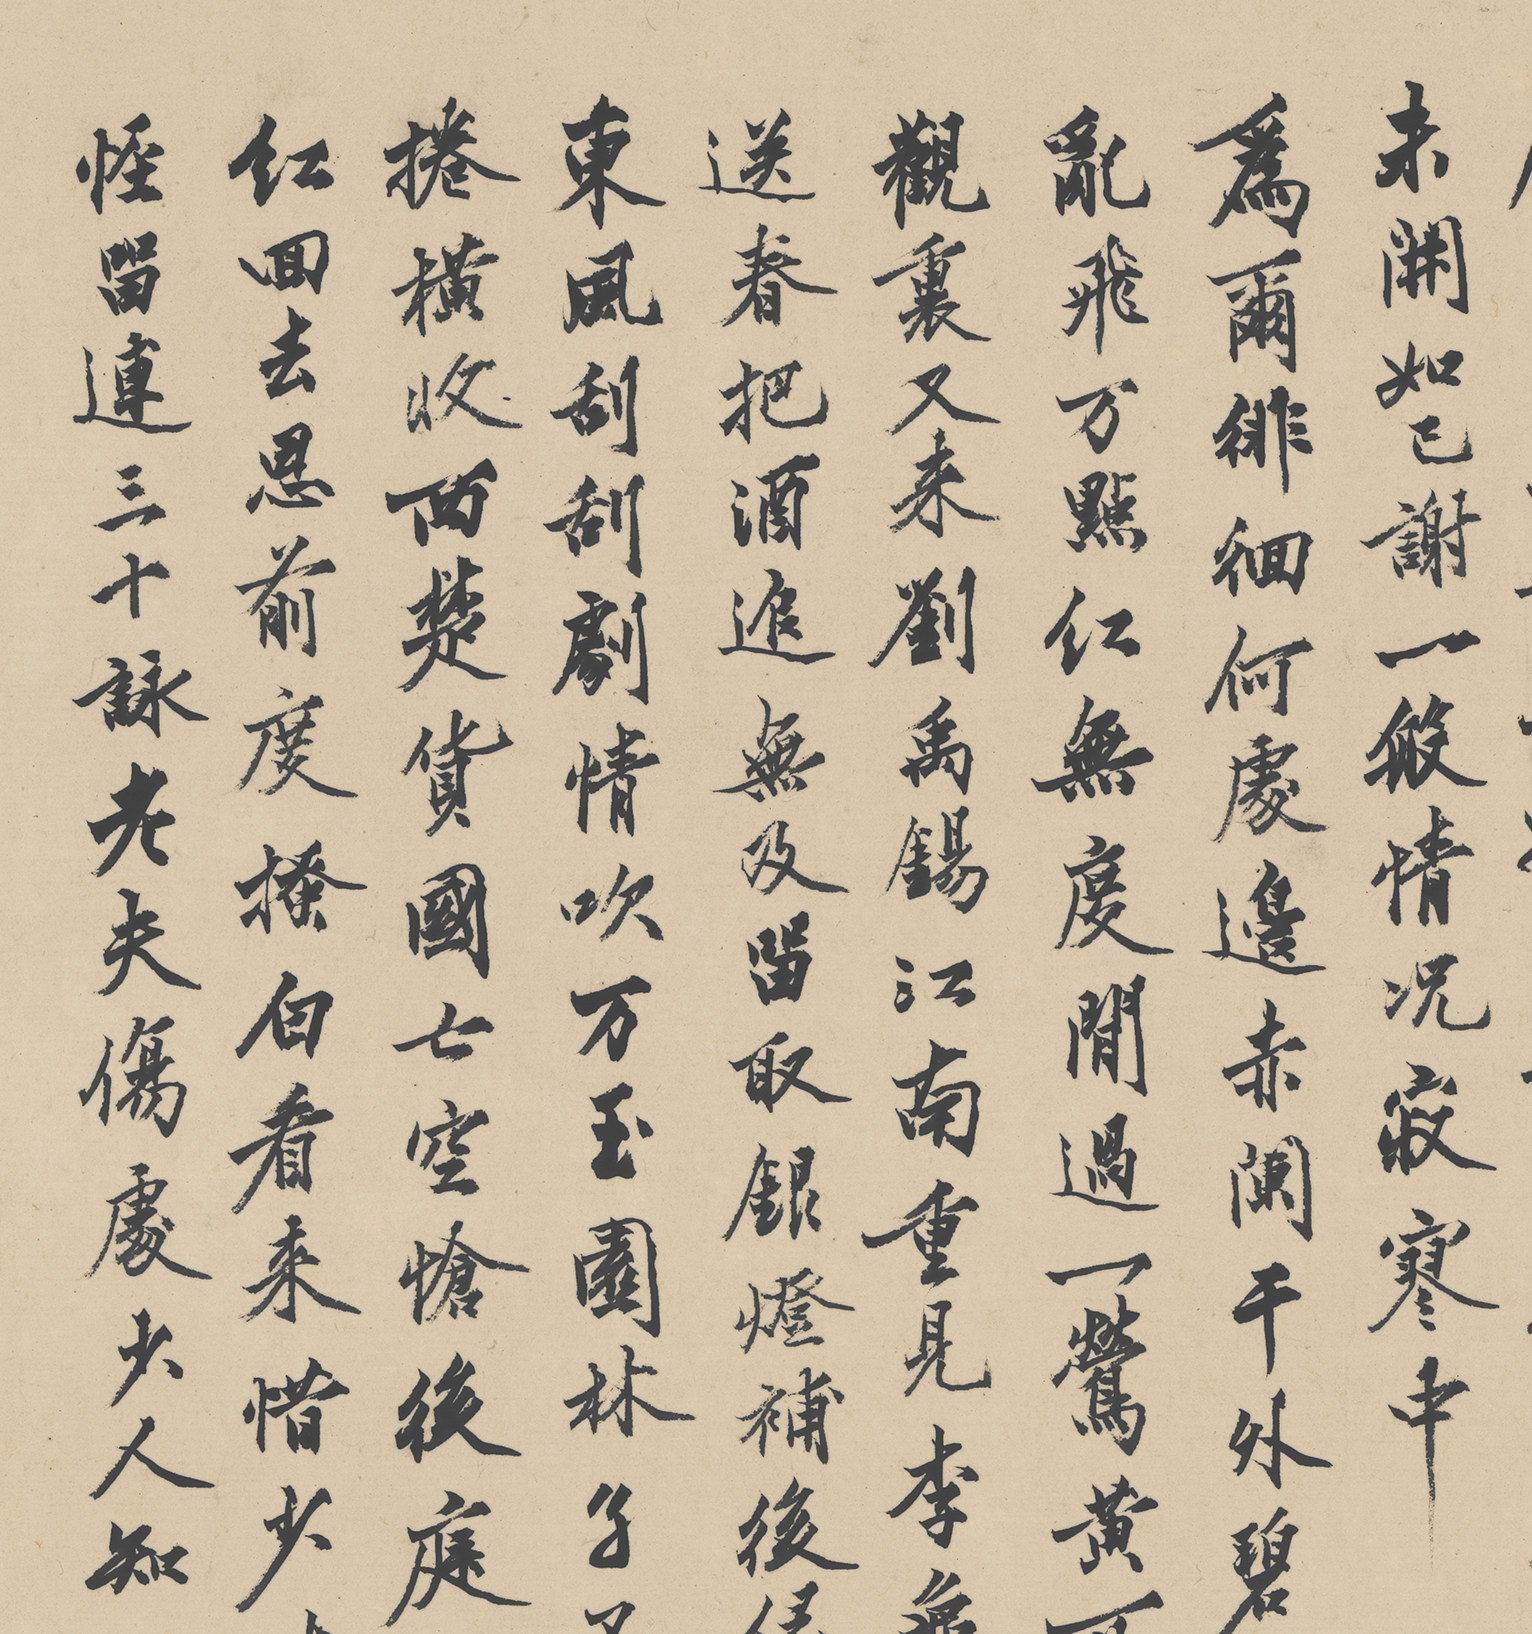 未開如已謝一般情况寂寒中
爲爾徘徊何處邊赤闌干外碧
亂飛万點红無度閒過一鶯黄
觀裏又来劉禹錫江南重見李龜
送春把酒追無及留取銀燈補後
東風刮刮劇情吹万玉園林
捲横收西楚貨國亡空愴後庭
红回去恩前度掻白看来惜少
怪留連三十詠老夫傷處少人知